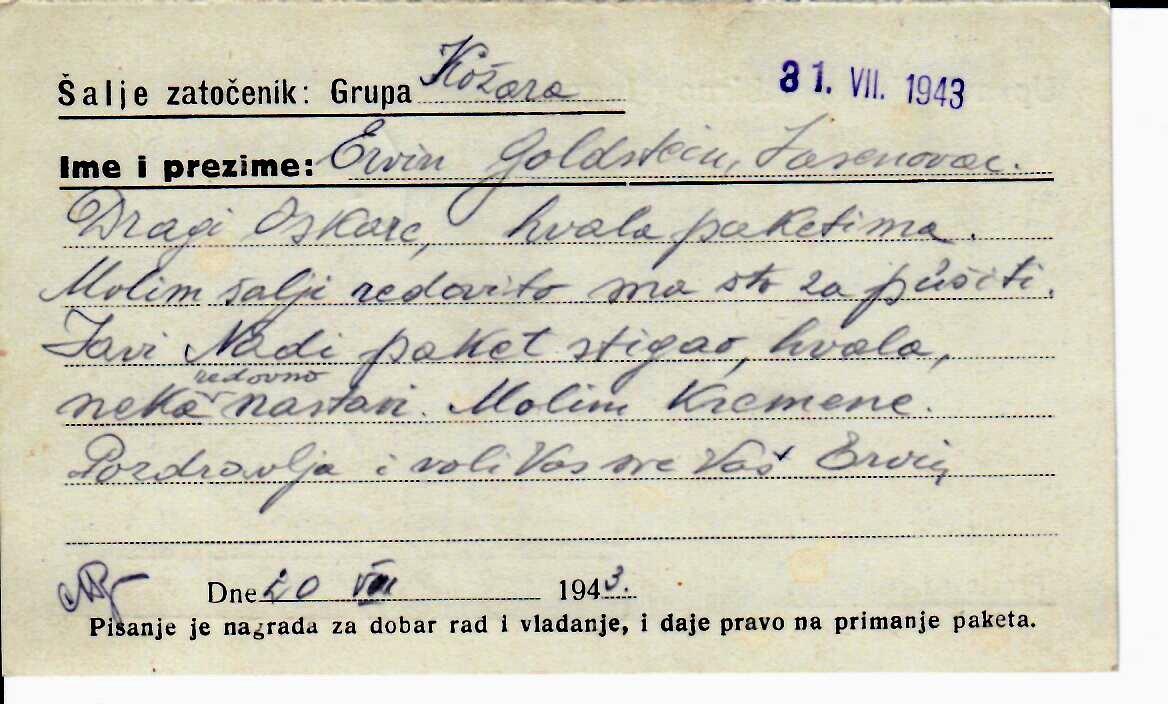 Šalje zatočenik: Grupa Kožara
31. VII. 1943
Ime i prezime: Ervin Goldstein, Jasenovac.
Dragi Oskare, hvala paketima.
Molim šalji redovito ma što za pušiti.
Javi Nadi paket stigao, hvala,
redovno
neka nastavi. Molim Kremene.
Pozdravlja i voli Vas sve Vaš Ervin
Dne 20 VII 1943.
Pisanje je nagrada za dobar rad i vladanje, i daje pravo na primanje paketa.